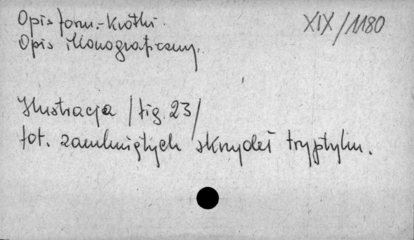 Opis form.-krótki.
XIX/1180
Opis ikonograficzny.
Ilustracja /fig. 23/
fot. zamkniętych skrzydeł tryptyku.